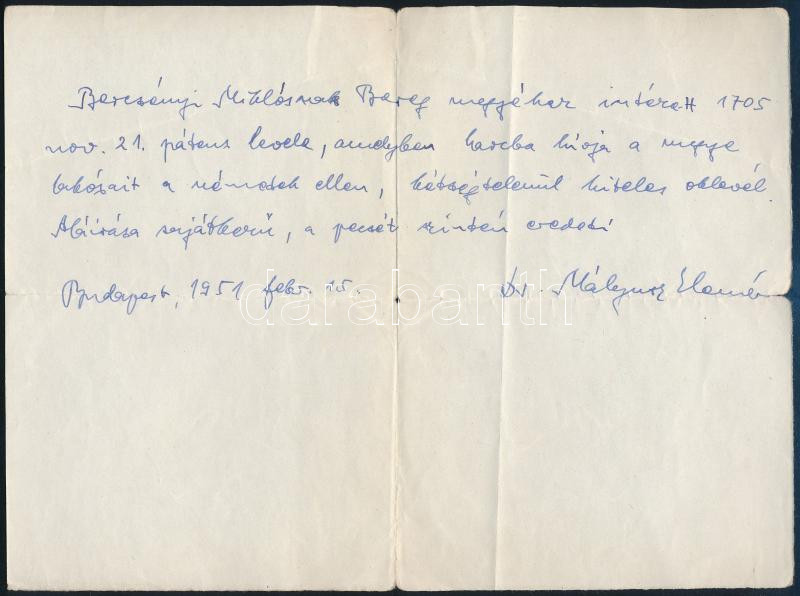 Bercsényi Miklósnak Bereg megyéhez intézett 1705
nov. 21. pátens levele, amelyben harcba hívja a megye
lakósait a németek ellen, kétségtelenül hiteles oklevél.
Aláírása sajátkezű, a pecsét szintén eredeti
Budapest, 1951 febr. 15.
Dr. Mályusz Elemér
darabanth